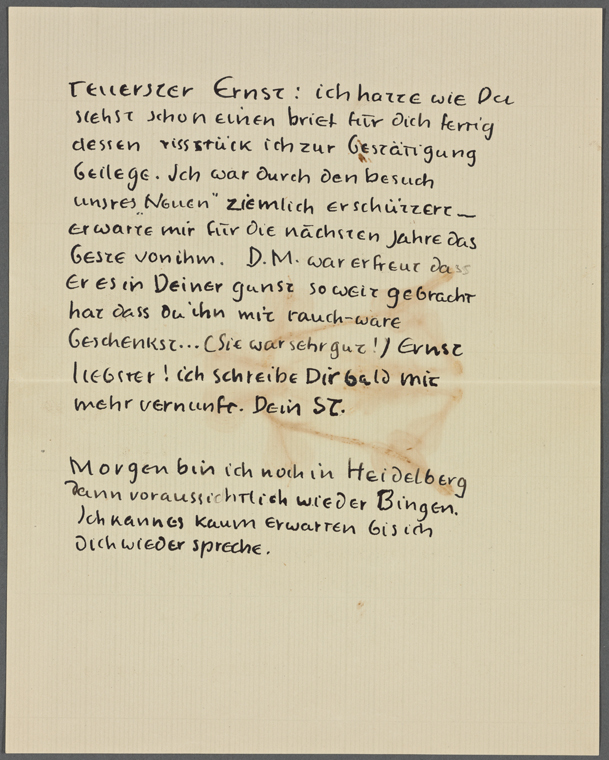 Teuerster Ernst: ich hatte wie Du
siehst schon einen brief für Dich fertig
dessen rissstück ich zur bestätigung
beilege. Ich war durch den besuch
unsres „Neuen" ziemlich erschüttert —
erwarte mir für die nächsten jahre das
beste von ihm. D.M. war erfreut dass
Er es in Deiner gunst so weit gebracht
hat dass du ihn mit rauch-ware
beschenkst... (Sie war sehr gut!) Ernst
liebster! ich schreibe Dir bald mit
mehr vernunft. Dein ST.
Morgen bin ich noch in Heidelberg
Dann voraussichtlich wieder Bingen.
Ich kann es kaum erwarten bis ich
Dich wieder spreche.